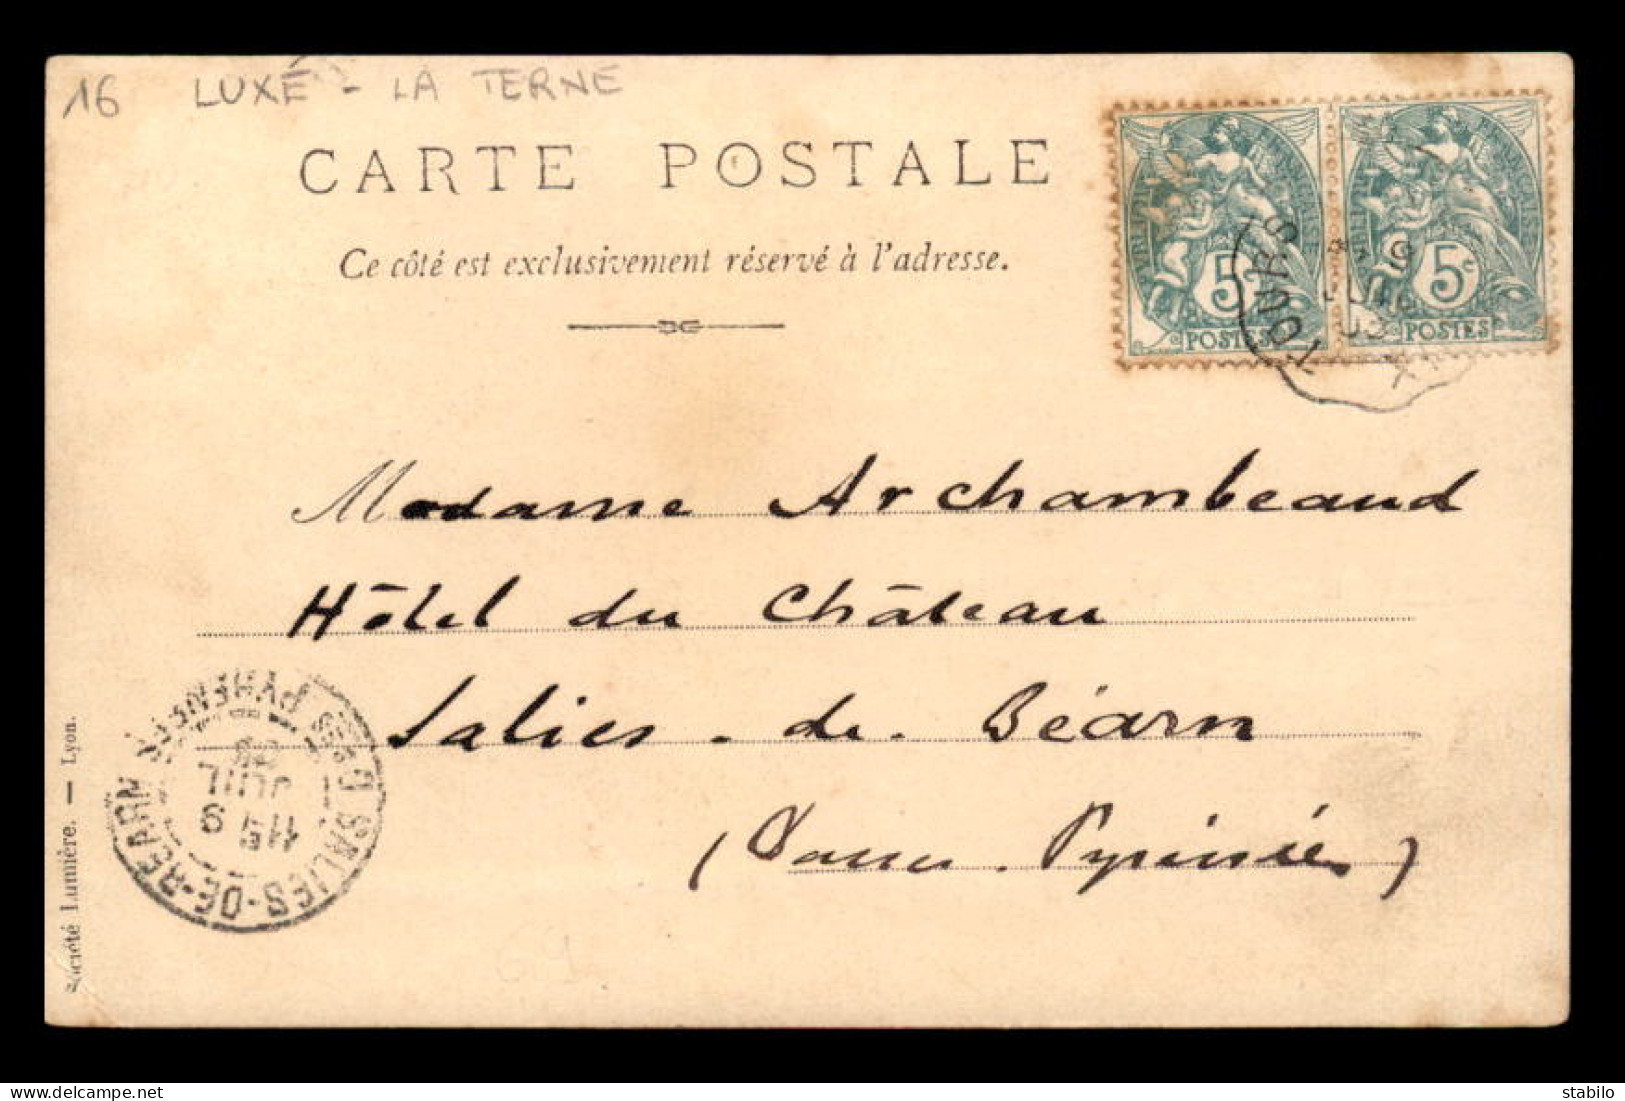 16 LUXÉ - LA TERNE
CARTE POSTALE
Ce côté est exclusivement réservé à l'adresse.
RÉPUBLIQUE FRANÇAISE
5c
POSTES
5c
POSTES
TOURS
9
Madame Archambeaud
Hôtel du Château
Salies-de-Béarn
(Basses Pyrénées)
SALIES-DE-BEARN
BSES PYRENEES
9
JUIL
Société Lumière. — Lyon.
stabilo